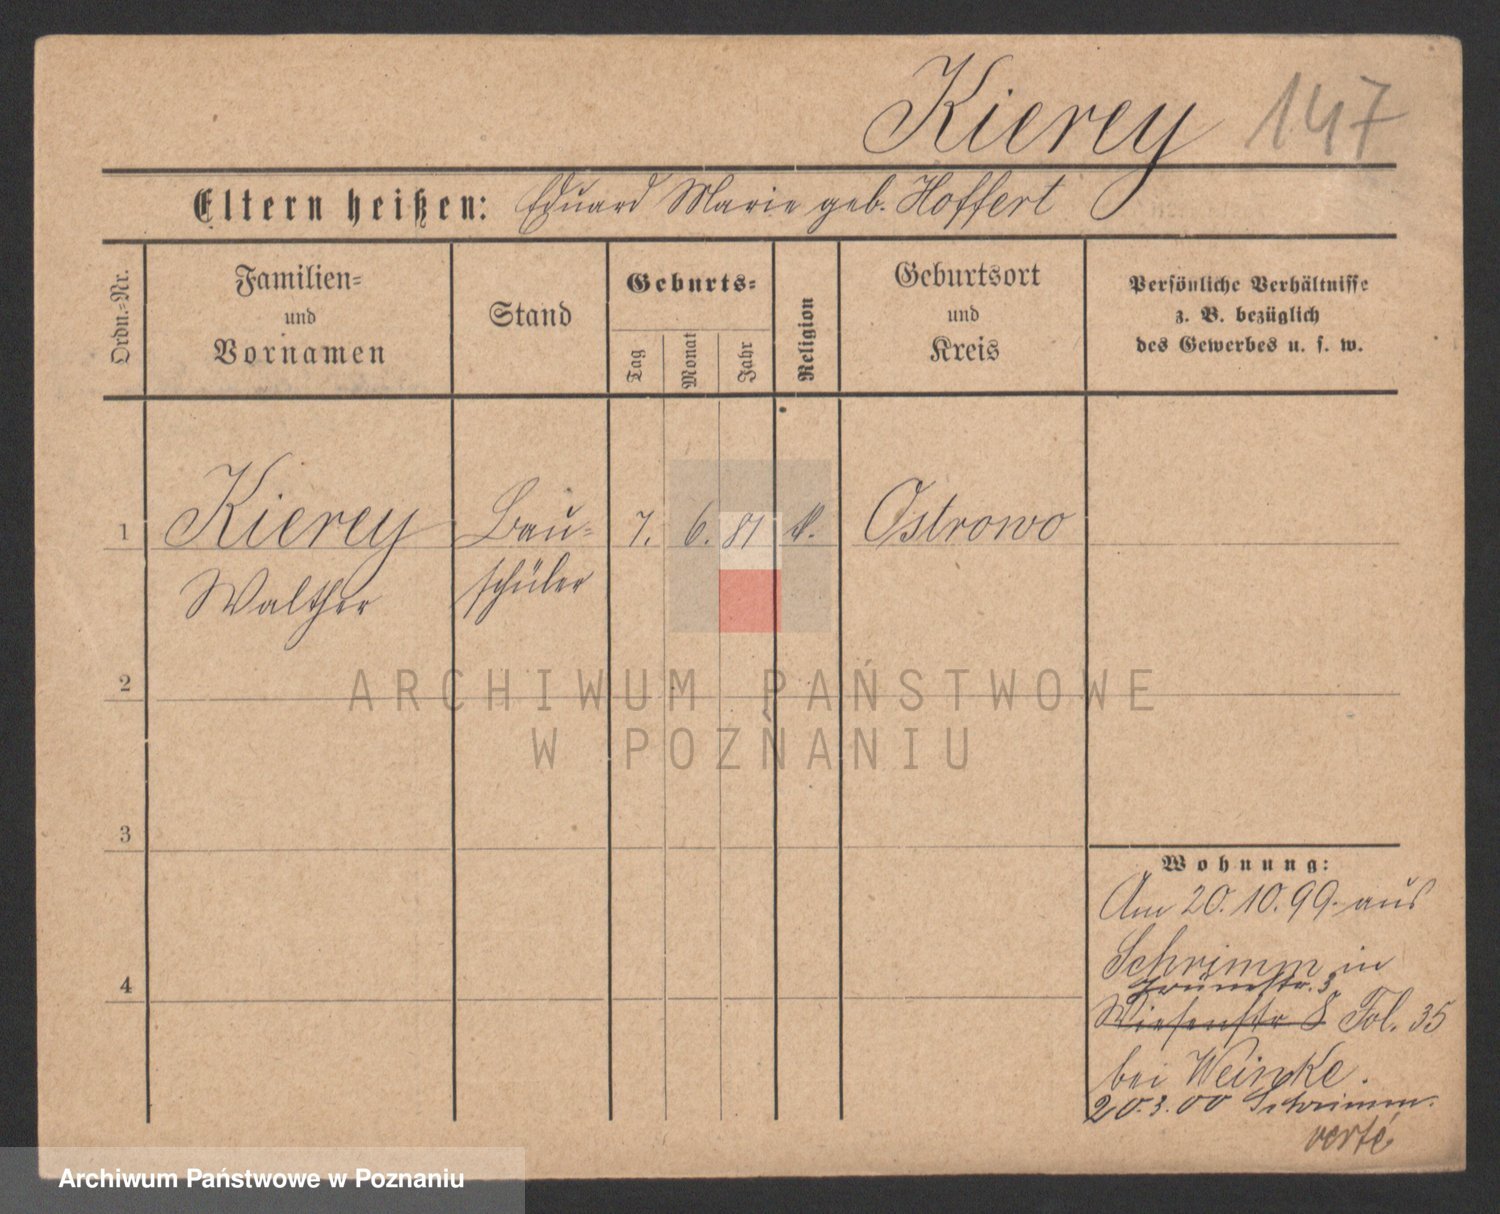 Kierey 147
Eltern heißen: Eduard Marie geb. Hoffert
Ordn.-Nr.
Familien-
und
Vornamen
Stand
Geburts-
Tag
Monat
Jahr
Religion
Geburtsort
und
Kreis
Persönliche Verhältnisse
z. B. bezüglich
des Gewerbes u. s. w.
1 Kierey Bau- 7. 6. 81 k. Ostrowo
Walther schüler
2
ARCHIWUM PAŃSTWOWE
W POZNANIU
3
Wohnung:
Am 20.10.99. aus
Schrimm in
4
Grünstr. 3
Wiesenstr 8 Fol. 35
bei Weinke.
20.3.00 Schrimm.
verte
Archiwum Państwowe w Poznaniu